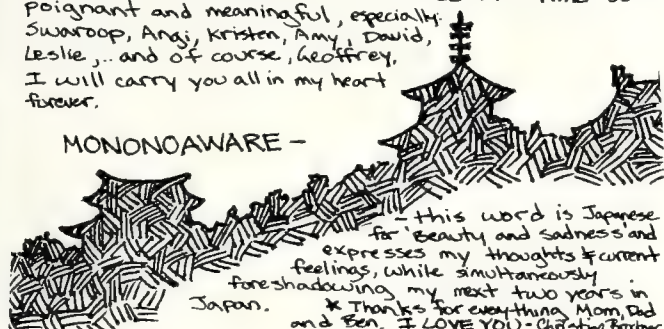 poignant and meaningful, especially:
Swaroop, Angi, Kristen, Amy, David,
Leslie,.. and of course, Geoffrey,
I will carry you all in my heart
forever.
MONONOAWARE –
– this word is Japanese
for 'Beauty and sadness' and
expresses my thoughts & current
feelings, while simultaneously
foreshadowing my next two years in
Japan.
* Thanks for everything Mom, Dad
and Ben. I LOVE YOU - Christie